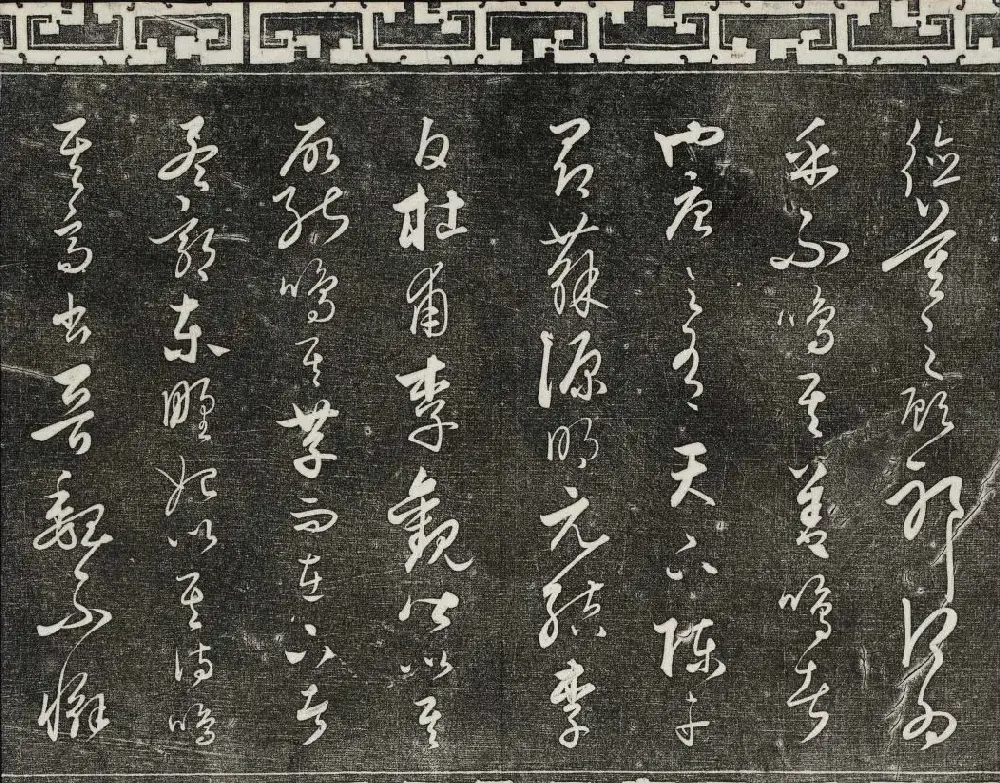 德莫之顧邪何為
乎不鳴其善鳴者
也唐之有天下陳子
昂蘇源明元結李
白杜甫李觀皆以其
所能鳴其存而在下者
孟郊東野始以其詩鳴
其高出晉魏不懈